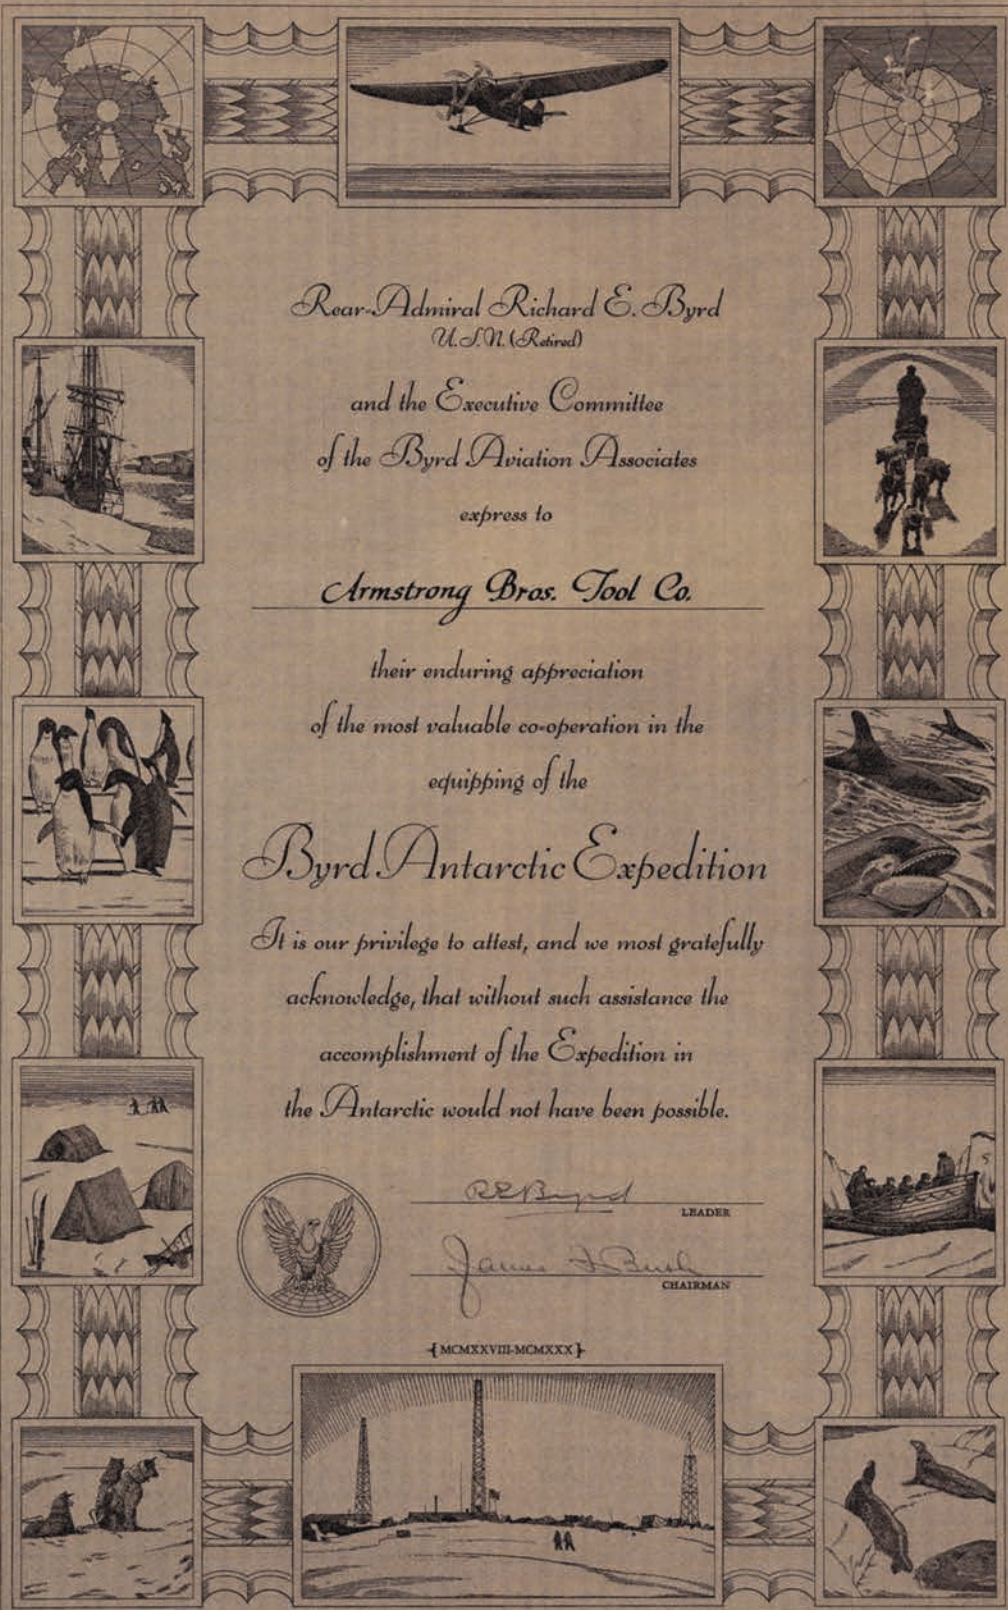 Rear-Admiral Richard E. Byrd
U.S.N. (Retired)
and the Executive Committee
of the Byrd Aviation Associates
express to
Armstrong Bros. Tool Co.
their enduring appreciation
of the most valuable co-operation in the
equipping of the
Byrd Antarctic Expedition
It is our privilege to attest, and we most gratefully
acknowledge, that without such assistance the
accomplishment of the Expedition in
the Antarctic would not have been possible.
R E Byrd
LEADER
James F. Bush
CHAIRMAN
{MCMXXVIII-MCMXXX}